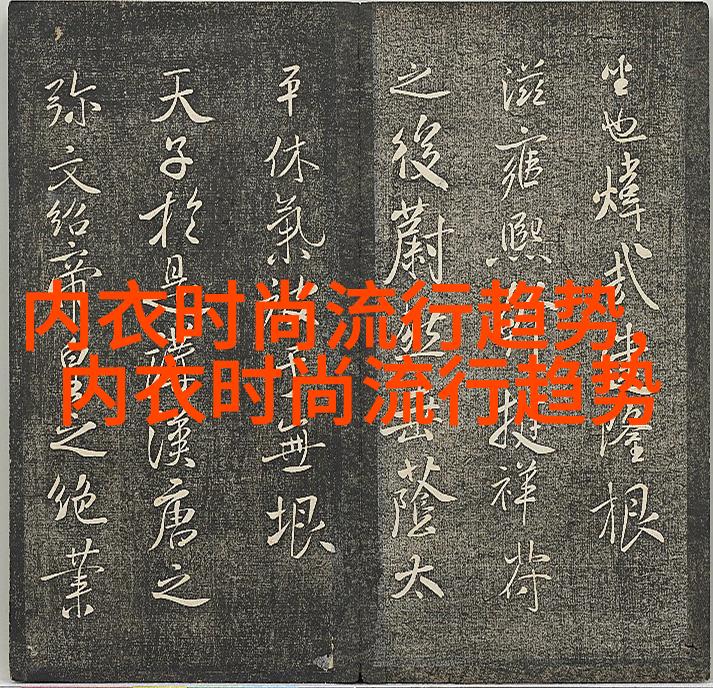 内衣时尚流行趋势,
内衣时尚流行趋势
也煒哉隆根
滋雍熙挺祥符
之後蔚蔭太
平休氣無垠
天子於是漢唐之
弥文紹帝皇之絶業